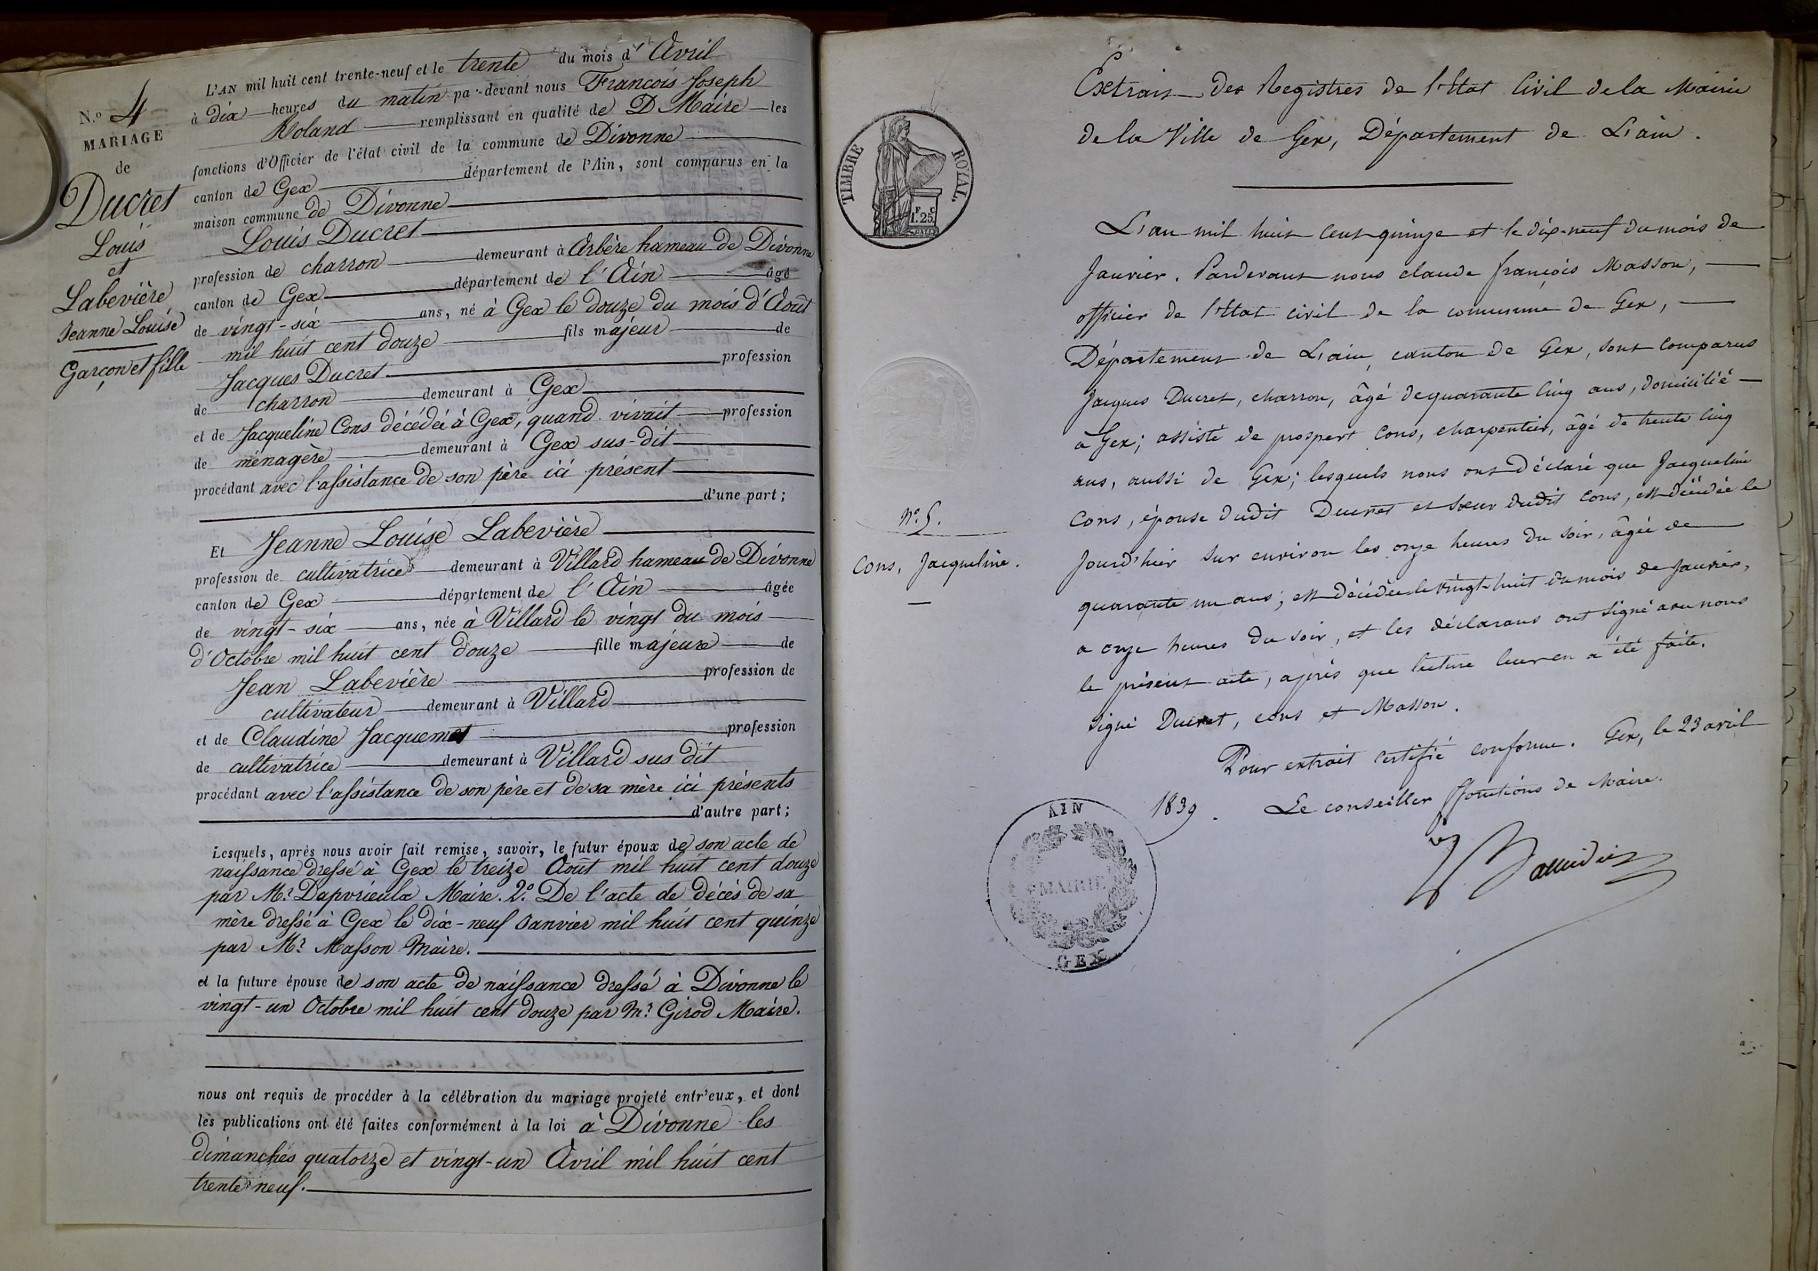 N.o 4
MARIAGE
de
Ducret
Louis
et
Labevière
Jeanne Louise
Garçon et fille
L'AN mil huit cent trente-neuf et le trente du mois d'Avril
à dix heures du matin par-devant nous François Joseph
Roland remplissant en qualité de D. Maire les
fonctions d'Officier de l'état civil de la commune de Divonne
canton de Gex département de l'Ain, sont comparus en la
maison commune de Divonne
Louis Ducret
profession de charron demeurant à Arbère hameau de Divonne
canton de Gex département de l'Ain âgé
de vingt-six ans, né à Gex le douze du mois d'Août
mil huit cent douze fils majeur de
Jacques Ducret profession
de charron demeurant à Gex
et de Jacqueline Cons décédée à Gex, quand vivait profession
de ménagère demeurant à Gex sus-dit
procédant avec l'assistance de son père ici présent
d'une part;
Et Jeanne Louise Labevière
profession de cultivatrice demeurant à Villard hameau de Divonne
canton de Gex département de l'Ain âgée
de vingt-six ans, née à Villard le vingt du mois
d'Octobre mil huit cent douze fille majeure de
Jean Labevière profession de
cultivateur demeurant à Villard
et de Claudine Jacquemet profession
de cultivatrice demeurant à Villard sus dit
procédant avec l'assistance de son père et de sa mère ici présents
d'autre part;
Lesquels, après nous avoir fait remise, savoir, le futur époux de son acte de
naissance dressé à Gex le treize Août mil huit cent douze
par Mr. Maire. 2o. De l'acte de décès de sa
mère dressé à Gex le dix-neuf Janvier mil huit cent quinze
par Mr. Masson Maire.
et la future épouse de son acte de naissance dressé à Divonne le
vingt-un Octobre mil huit cent douze par Mr. Girod Maire.
nous ont requis de procéder à la célébration du mariage projeté entr'eux, et dont
les publications ont été faites conformément à la loi à Divonne les
dimanches quatorze et vingt-un Avril mil huit cent
trente neuf.
TIMBRE ROYAL.
F. C.
1.25
No. 5.
Cons, Jacqueline.
Extrait des Registres de l'Etat Civil de la Mairie
de la Ville de Gex, Département de L'ain.
L'an mil huit cent quinze et le dix-neuf du mois de
Janvier. Pardevant nous claude françois Masson,
officier de l'Etat civil de la commune de Gex,
Département de L'ain, canton de Gex, sont comparus
Jacques Ducret, charron, âgé de quarante cinq ans, domicilié
à Gex; assisté de prospert Cons, charpentier, âgé de trente cinq
ans, aussi de Gex; lesquels nous ont déclaré que Jacqueline
Cons, épouse dudit Ducret et sœur dudit Cons, est décédée le
jourd'hier sur environ les onze heures du soir, âgée de
quarante un ans; est décédée le vingt-huit du mois de Janvier,
a onze heures du soir, et les déclarans ont signé avec nous
le présent acte, après que lecture leur en a été faite.
signé Ducret, cons et Masson.
Pour extrait certifié conforme. Gex, le 23 avril
1839. Le conseiller ffonctions de Maire.
AIN
MAIRIE
GEX